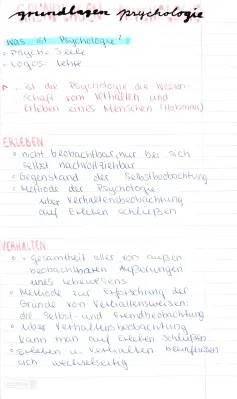 grundlagen psychologie
Was ist Psychologie?
• Psyche: Seele
• Logos: Lehre
... ist die Psychologie die Wissen-
schaft vom Verhalten und
Erleben eines Menschen
ERLEBEN
• nicht beobachtbar, nur bei sich
selbst nachvollziehbar
• Gegenstand der Selbstbeobachtung
• Methode der Psychologie
über Verhaltensbeobachtung
auf Erleben schließen
VERHALTEN
• Gesamtheit aller von außen
beobachtbaren Äußerungen
eines Lebewesens
• Methode zur Erforschung der
Gründe von Verhaltensweisen:
die Selbst- und Fremdbeobachtung
• über Verhaltensbeobachtung
kann man auf Erleben schließen
• Erleben u. Verhalten beeinflussen
sich wechselseitig